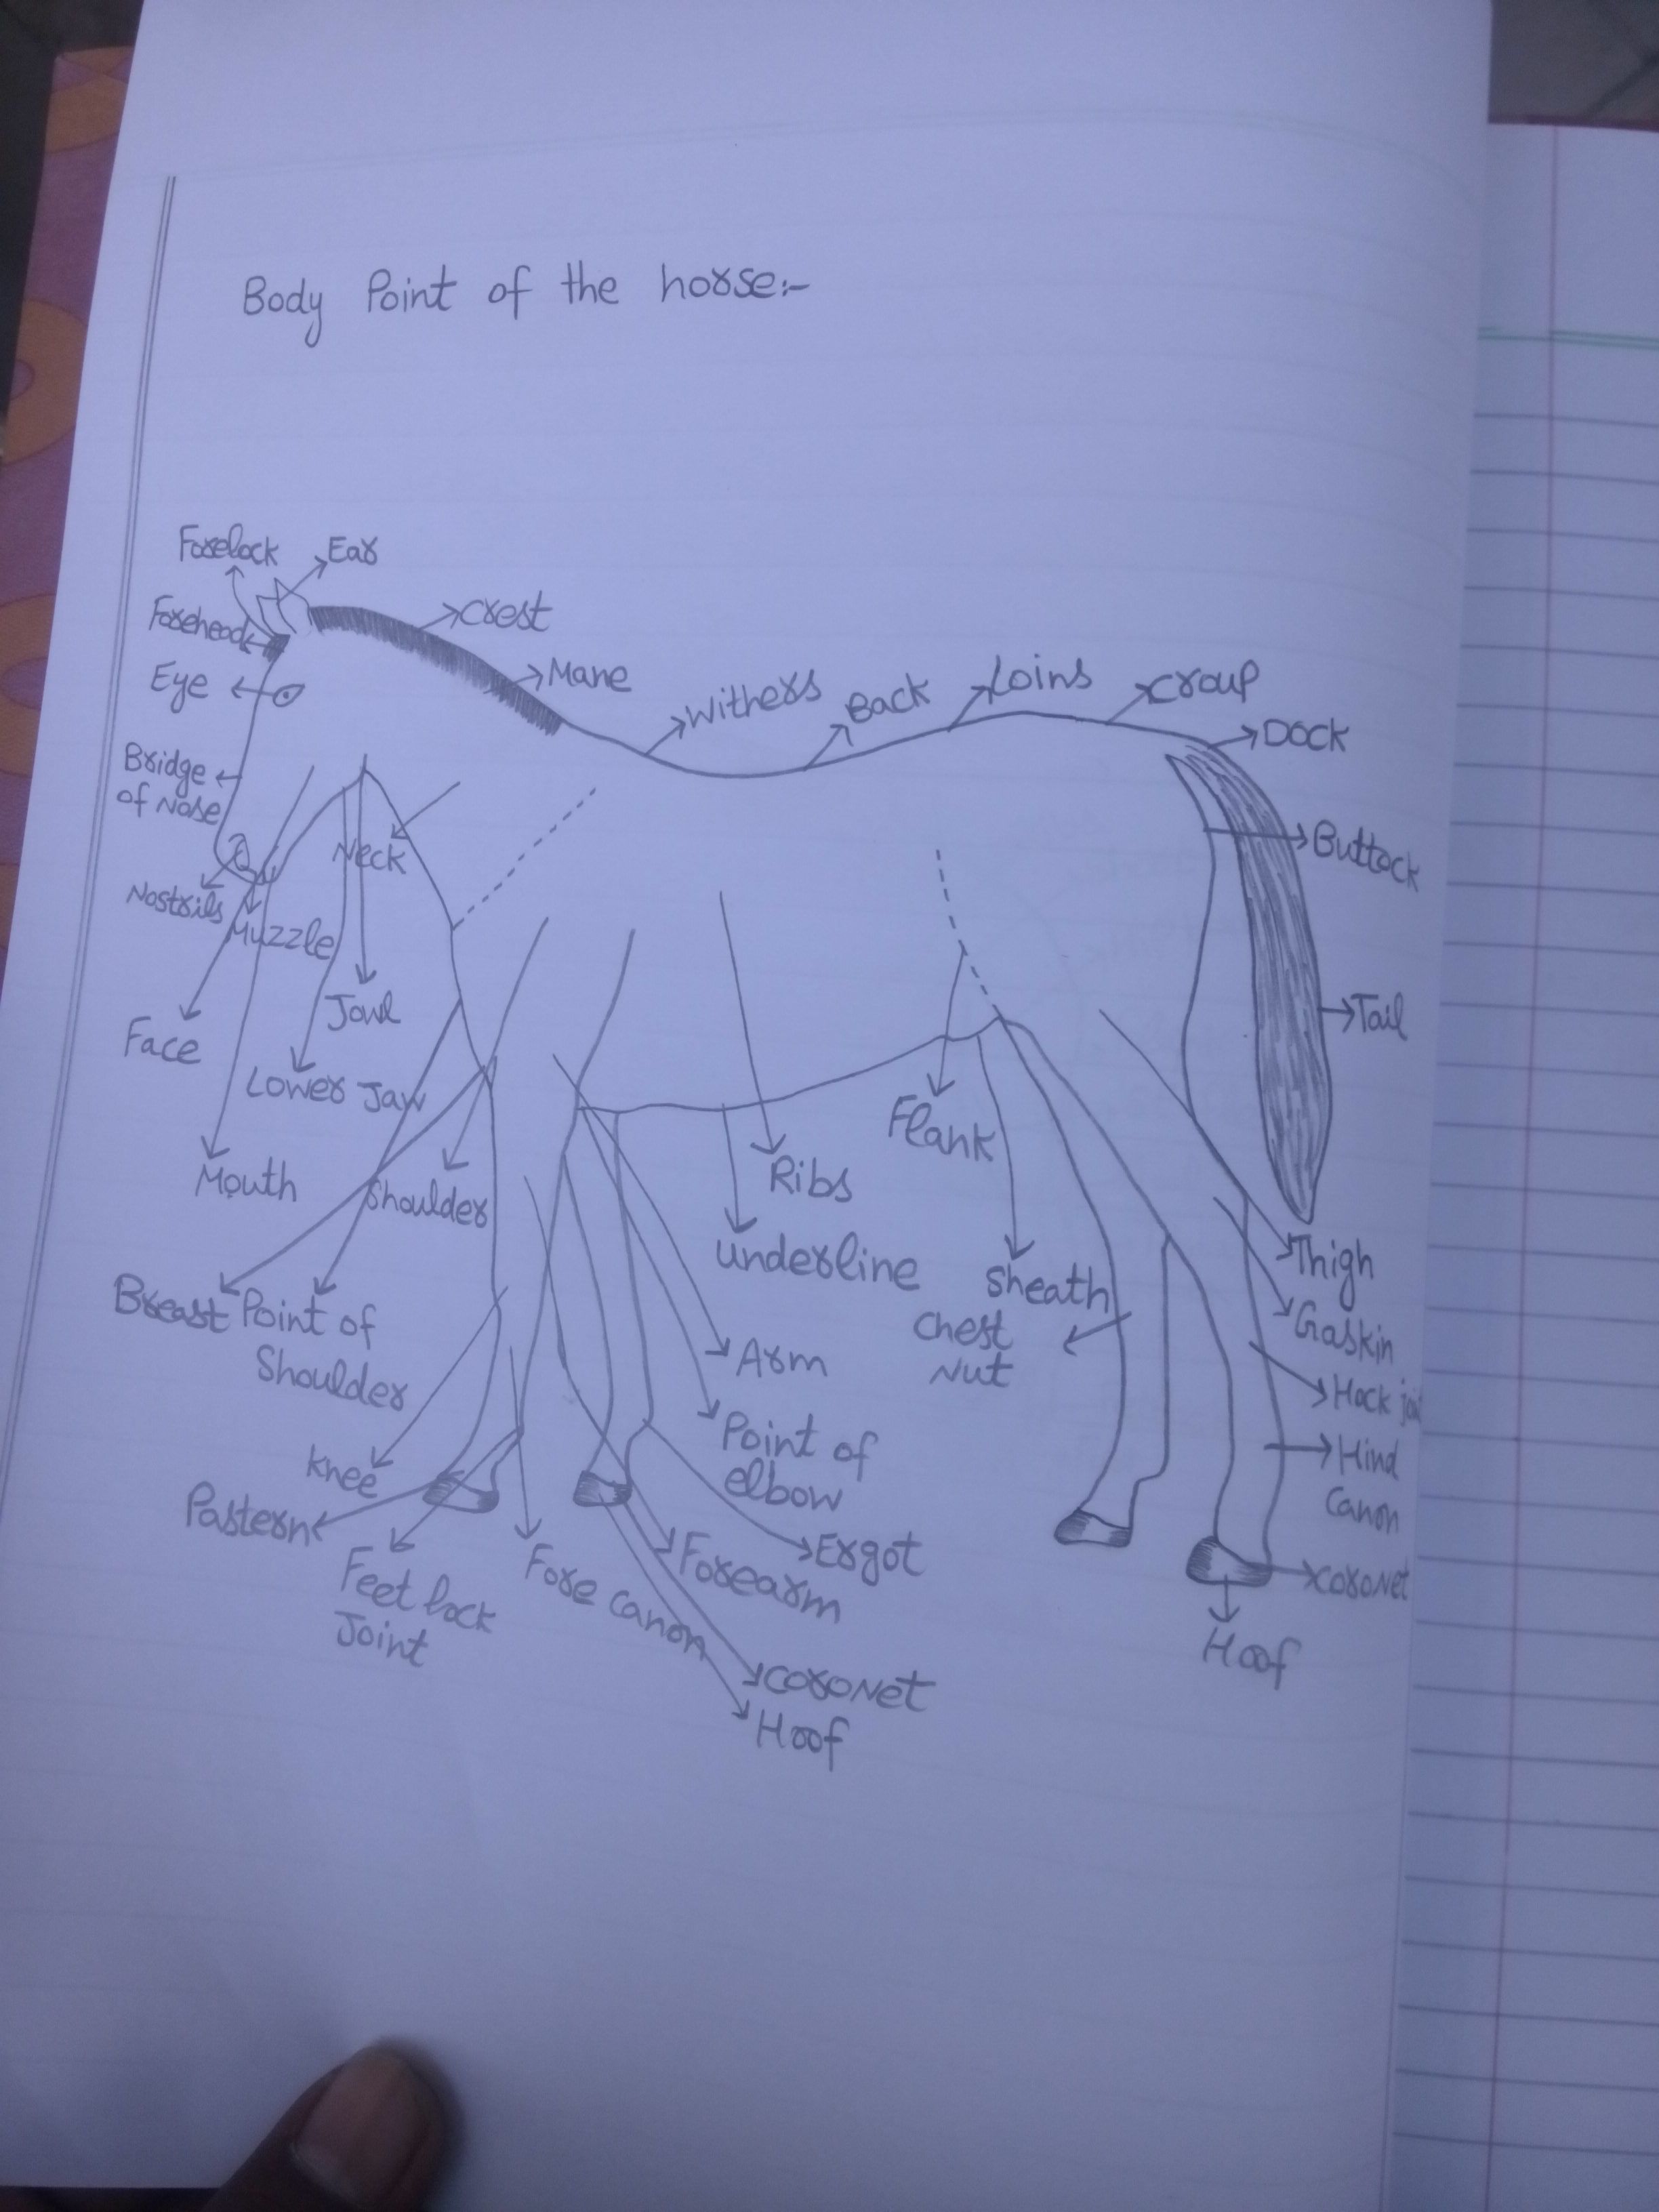 Body Point of the horse:-
Forelock
Ear
Forehead
Crest
Eye
Mane
Withers
Back
Loins
Croup
Dock
Bridge
of Nose
Neck
Buttock
Nostrils
Muzzle
Jowl
Tail
Face
Lower Jaw
Flank
Mouth
Shoulder
Ribs
Underline
Sheath
Thigh
Breast
Point of
Shoulder
Chest
Nut
Gaskin
Arm
Hock joi
Point of
elbow
Knee
Hind
Canon
Pastern
Ergot
Feet lock
Joint
Fore Canon
Forearm
Coronet
Hoof
Coronet
Hoof